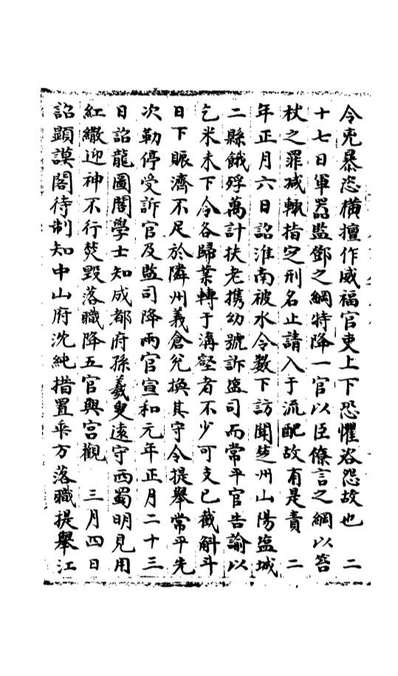 令兇暴恣橫擅作威福官吏上下恐懼咨怨故也　二
十七日軍器監鄧之綱特降一官以臣僚言之綱以笞
杖之罪減輒指定刑名止請入于流配故有是責　二
年正月六日詔淮南被水令數下訪聞楚州山陽塩城
二縣餓殍萬計扶老携幼號訴監司而常平官告諭以
乞米未下令各歸業轉于溝壑者不少可支已截斛斗
日下賑濟不足於隣州義倉兌換其守令提舉常平先
次勒停受訴官及監司降兩官宣和元年正月二十三
日詔龍圖閣學士知成都府孫羲叟遠守西蜀明見用
紅繖迎神不行焚毀落職降五官與宮觀　三月四日
詔顯謨閣待制知中山府沈純措置乖方落職提舉江